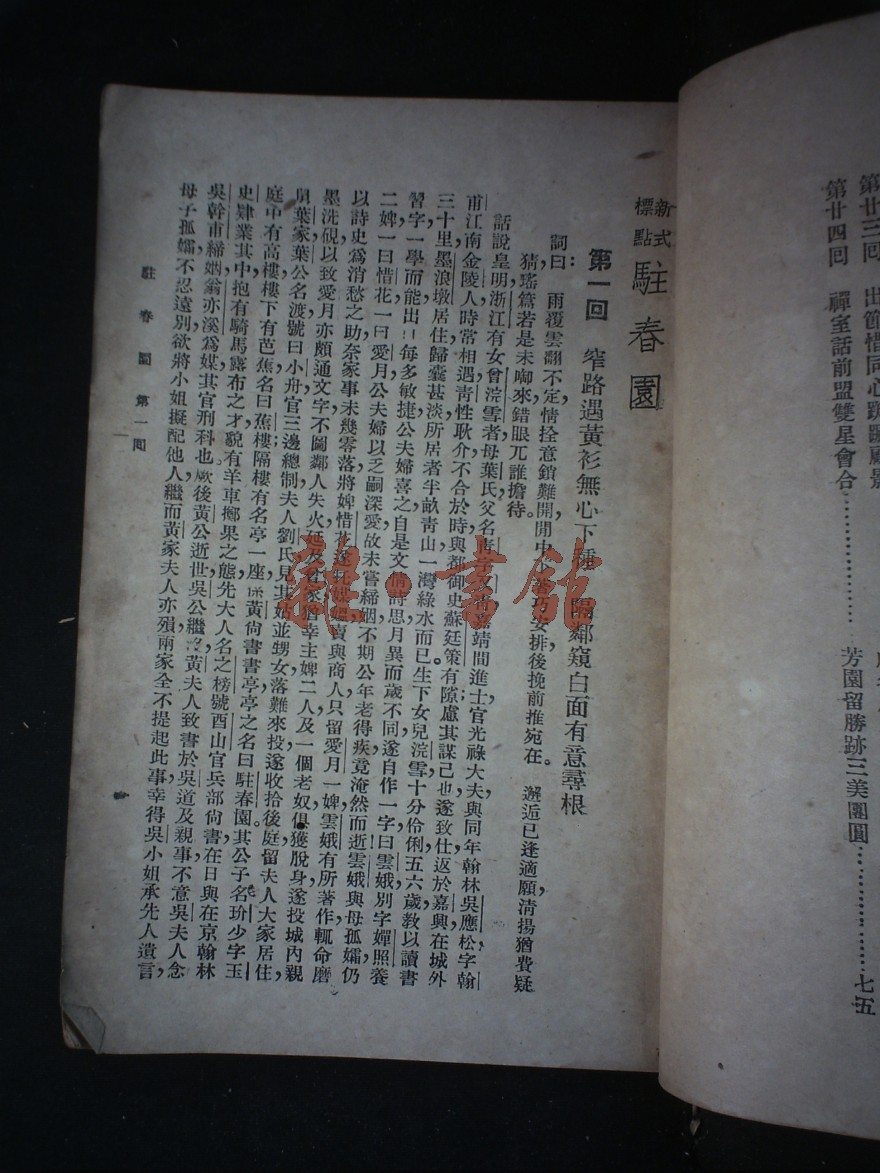 第廿三回 出節惜同心
第廿四回 禪室話前盟雙星會合
芳園留勝跡三美團圓……………七五
新式標點 駐春園
第一回 窄路遇黃衫無心下種 隔鄰窺白面有意尋根
詞曰: 雨覆雲翻不定,情拴意鎖難開,開中下著巧安排,後挽前推宛在。 邂逅已逢適願,清揚猶費疑
猜,瑤篇若是未啣來,錯眼兀誰擔待。
話說皇明浙江有女曾浣雪者,母葉氏,父名青
甫,江南金陵人,時常相遇,青性耿介,不合於時,與都御史蘇廷策有隙,慮其謀己也,遂致仕返於嘉興,在城外
靖間進士,官光祿大夫,與同年翰林吳應松字翰
三十里墨浪墩居住,歸囊甚淡,所居者半畝青山,一灣綠水而已。生下女兒浣雪,十分伶俐,五六歲教以讀書
習字,一學而能出口每多敏捷,公夫婦喜之,自是文情詩思,月異而歲不同,遂自作一字曰雲娥,別字嬋照,養
二婢,一曰惜花,一曰愛月,公夫婦以乏嗣深愛,故未嘗締姻,不期公年老得疾,竟淹然而逝,雲娥與母孤孀,仍
以詩史爲消愁之助,奈家事未幾零落,將婢惜花遂托媒媼賣與商人,只留愛月一婢,雲娥有所著作,輒命磨
墨洗硯,以致愛月亦頗通文字,不圖鄰人失火,延及曾家,猶幸主婢二人及一個老奴,俱獲脫身,遂投城內親
舅葉家,葉公名渡,號曰小舟,官三邊總制,夫人劉氏,見其姑並甥女落難來投,遂收拾後庭,留夫人大家居住,
庭中有高樓,樓下有芭蕉,名曰蕉樓,隔樓有名亭一座,係黃尚書書亭,亭之名曰駐春園。其公子名玠,少字玉
史,肄業其中,抱有騎馬露布之才,貌有羊車擲果之態,先大人名之榜,號酉山,官兵部尚書,在日與在京翰林
吳幹甫締姻,翁亦溪爲媒,其官刑科也。厥後黃公逝世,吳公繼沒,黃夫人致書於吳,道及親事,不意吳夫人念
母子孤孀,不忍遠別,欲將小姐擬配他人,繼而黃家夫人亦殞,兩家全不提起此事,幸得吳小姐承先人遺言,
駐春園 第一回 一
龍·書館